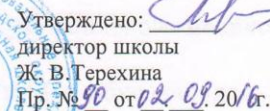 Утверждено:
директор школы
Ж. В.Терехина
Пр. №90 от 02. 09 2016г